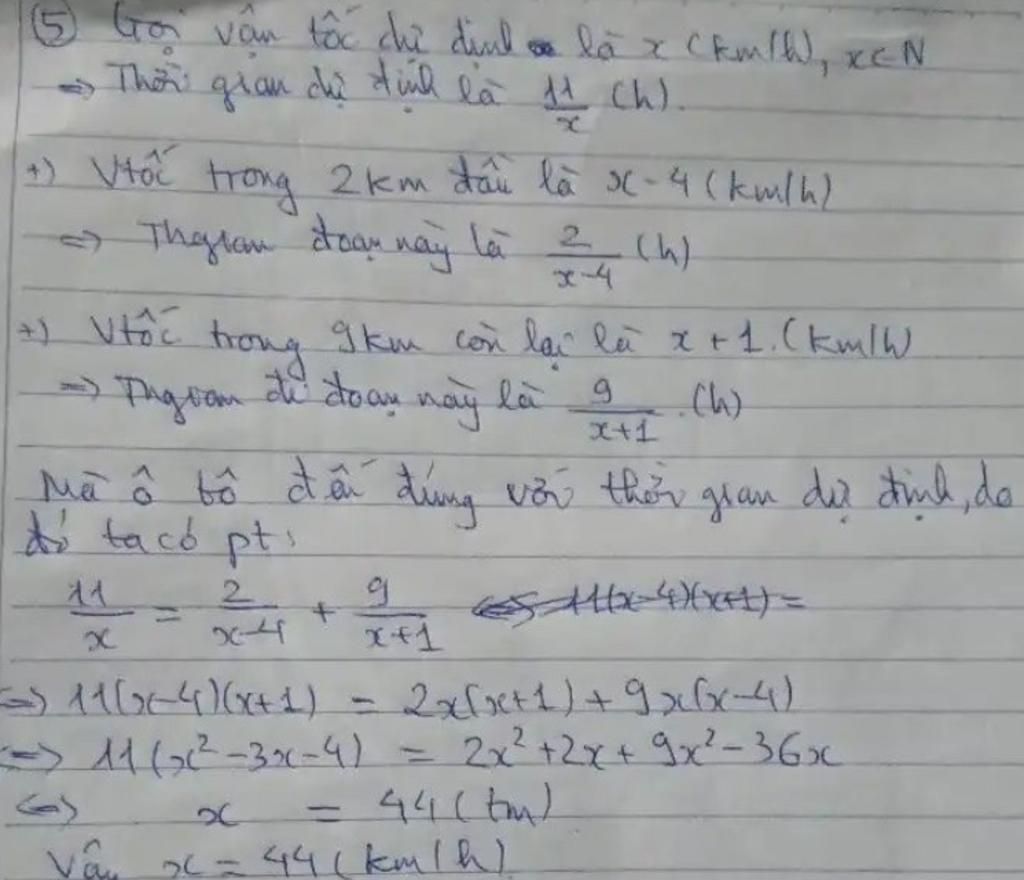 ⑤ Gọi vận tốc dự định là x (km/h), x∈N
=> Thời gian dự định là 11/x (h).
+) Vtốc trong 2km đầu là x-4 (km/h)
=> Thgian đoạn này là 2/(x-4) (h)
+) Vtốc trong 9km còn lại là x+1. (km/h)
=> Thgian đi đoạn này là 9/(x+1) .(h)
Mà ô tô đến đúng với thời gian dự định, do
đó ta có pt:
11/x = 2/(x-4) + 9/(x+1) <=> 11(x-4)(x+1) =
=> 11(x-4)(x+1) = 2x(x+1) + 9x(x-4)
=> 11(x²-3x-4) = 2x²+2x+9x²-36x
<=> x = 44 (tm)
Vậy x = 44 (km/h)